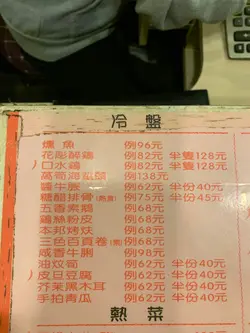 冷盤
燻魚 例96元
花彫醉雞 例82元 半隻128元
口水雞 例82元 半隻128元
萵筍海蜇頭 例138元
醬牛腱 例82元 半份40元
糖醋排骨 例75元 半份45元
五香素鵝 例68元
雞絲粉皮 例68元
本邦烤炊 例68元
三色百頁卷 例68元
咸香牛腩 例98元
油炆筍 例82元 半份40元
皮旦豆腐 例62元 半份40元
芥茉黑木耳 例62元 半份40元
手拍青瓜 例62元 半份40元
熱菜